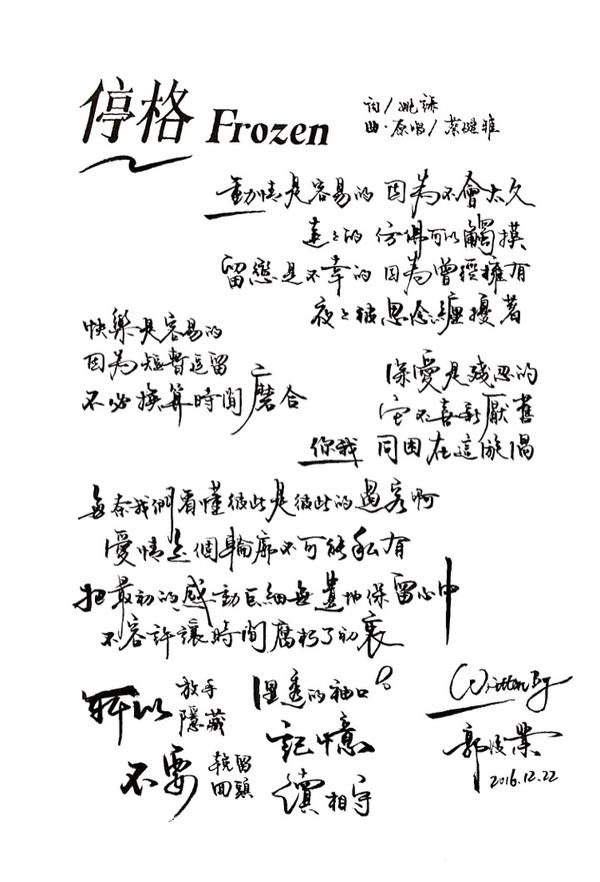 停格 Frozen
詞/姚謙
曲·原唱/蔡健雅
動情是容易的 因為不會太久
遠遠的 仿彿可以觸摸
留戀是不幸的 因為曾經擁有
夜夜被思念纏擾著
快樂是容易的
因為短暫逗留
不必換算時間磨合
深愛是殘忍的
它不喜新厭舊
你我 同困在這漩渦
無奈我們看懂彼此是彼此的過客啊
愛情是個輪廓不可能私有
把最初的感動巨細無遺地保留心中
不容許讓時間腐朽了初衷
所以 放手 隱藏 溼透的袖口
不要 挽留 回頭 記憶 續相守
Written By
郭業
2016.12.22